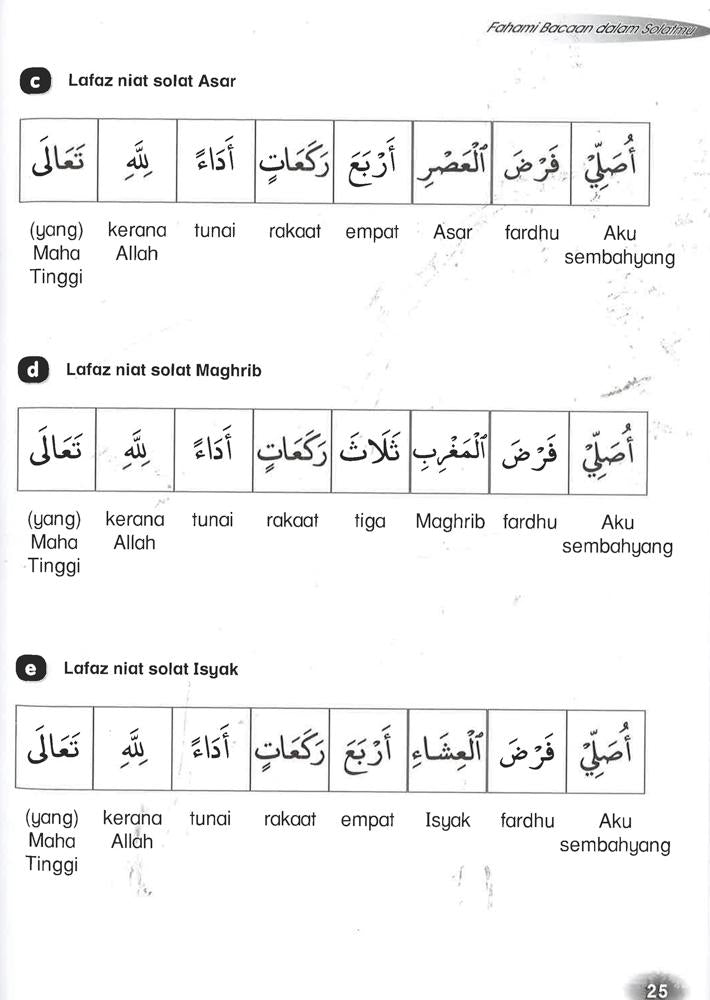 Fahami Bacaan dalam Solatmu
c Lafaz niat solat Asar
أُصَلِّيْ فَرْضَ ٱلْعَصْرِ أَرْبَعَ رَكَعَاتٍ أَدَاءً لِلَّهِ تَعَالَى
(yang) kerana tunai rakaat empat Asar fardhu Aku
Maha Allah sembahyang
Tinggi
d Lafaz niat solat Maghrib
أُصَلِّيْ فَرْضَ ٱلْمَغْرِبِ ثَلَاثَ رَكَعَاتٍ أَدَاءً لِلَّهِ تَعَالَى
(yang) kerana tunai rakaat tiga Maghrib fardhu Aku
Maha Allah sembahyang
Tinggi
e Lafaz niat solat Isyak
أُصَلِّيْ فَرْضَ ٱلْعِشَاءِ أَرْبَعَ رَكَعَاتٍ أَدَاءً لِلَّهِ تَعَالَى
(yang) kerana tunai rakaat empat Isyak fardhu Aku
Maha Allah sembahyang
Tinggi
25